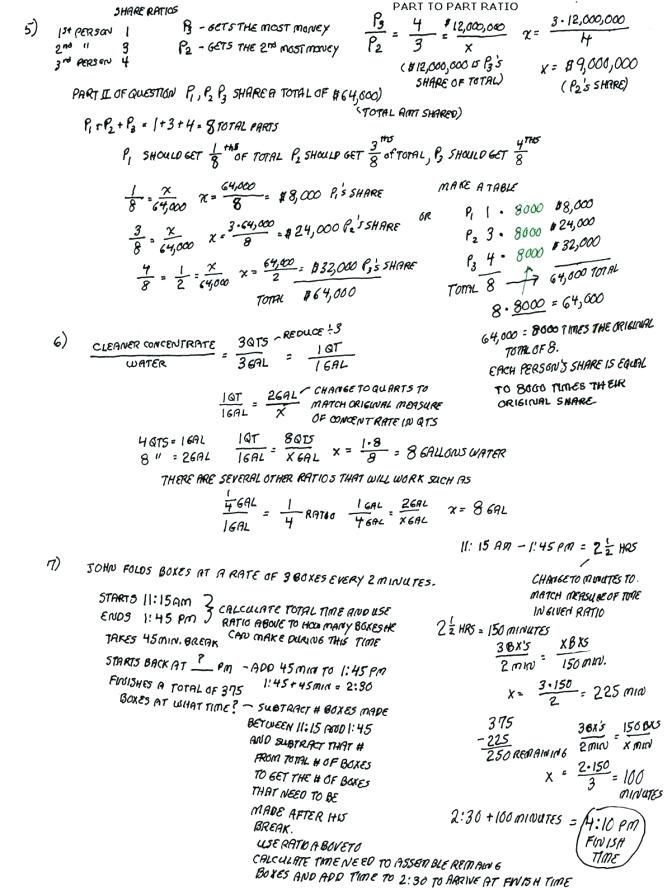 PART TO PART RATIO
5) SHARE RATIOS
1ST PERSON 1
2nd " 3
3rd PERSON 4
P3 - GETS THE MOST MONEY
P2 - GETS THE 2nd MOST MONEY
P3/P2 = 4/3 = $12,000,000/x x = 3·12,000,000/4
($12,000,000 IS P3'S SHARE OF TOTAL)
x = $9,000,000
(P2'S SHARE)
PART II OF QUESTION P1, P2 P3 SHARE A TOTAL OF $64,000)
(TOTAL AMT SHARED)
P1 + P2 + P3 = 1+3+4 = 8 TOTAL PARTS
P1 SHOULD GET 1/8 ths OF TOTAL P2 SHOULD GET 3ths/8 OF TOTAL, P3 SHOULD GET 4THS/8
1/8 = x/64,000 x = 64,000/8 = $8,000 P1'S SHARE
3/8 = x/64,000 x = 3·64,000/8 = $24,000 P2'S SHARE
4/8 = 1/2 = x/64,000 x = 64,000/2 = $32,000 P3'S SHARE
TOTAL $64,000
OR
MAKE A TABLE
P1 1 · 8000 $8,000
P2 3 · 8000 $24,000
P3 4 · 8000 $32,000
TOTAL 8 → 64,000 TOTAL
8 · 8000 = 64,000
64,000 = 8000 TIMES THE ORIGINAL
TOTAL OF 8.
EACH PERSON'S SHARE IS EQUAL
TO 8000 TIMES THEIR
ORIGINAL SHARE
6) CLEANER CONCENTRATE/WATER = 3QTS/3GAL = 1QT/1GAL
REDUCE ÷3
1QT/1GAL = 2GAL/X
CHANGE TO QUARTS TO
MATCH ORIGINAL MEASURE
OF CONCENTRATE IN QTS
4 QTS = 1GAL
8 " = 2GAL
1QT/1GAL = 8QTS/XGAL x = 1·8/8 = 8 GALLONS WATER
THERE ARE SEVERAL OTHER RATIOS THAT WILL WORK SUCH AS
1/4 GAL/1GAL = 1/4 RATIO 1GAL/4GAL = 2GAL/XGAL x = 8 GAL
7) JOHN FOLDS BOXES AT A RATE OF 3 BOXES EVERY 2 MINUTES.
STARTS 11:15AM
ENDS 1:45 PM
TAKES 45MIN. BREAK
CALCULATE TOTAL TIME AND USE
RATIO ABOVE TO HOW MANY BOXES HE
CAN MAKE DURING THIS TIME
STARTS BACK AT ? PM - ADD 45MIN TO 1:45PM
1:45 + 45MIN = 2:30
FINISHES A TOTAL OF 375
BOXES AT WHAT TIME? - SUBTRACT # BOXES MADE
BETWEEN 11:15 AND 1:45
AND SUBTRACT THAT #
FROM TOTAL # OF BOXES
TO GET THE # OF BOXES
THAT NEED TO BE
MADE AFTER HIS
BREAK.
USE RATIO ABOVE TO
CALCULATE TIME NEED TO ASSEMBLE REMAINING
BOXES AND ADD TIME TO 2:30 TO ARRIVE AT FINISH TIME
11:15 AM - 1:45 PM = 2 1/2 HRS
CHANGE TO MINUTES TO
MATCH MEASURE OF TIME
IN GIVEN RATIO
2 1/2 HRS = 150 MINUTES
3BX'S/2MIN = XBXS/150MIN.
x = 3·150/2 = 225 MIN
375
-225
250 REMAINING
3BX'S/2MIN = 150BXS/XMIN
x = 2·150/3 = 100
MINUTES
2:30 + 100 MINUTES = 4:10 PM
FINISH
TIME